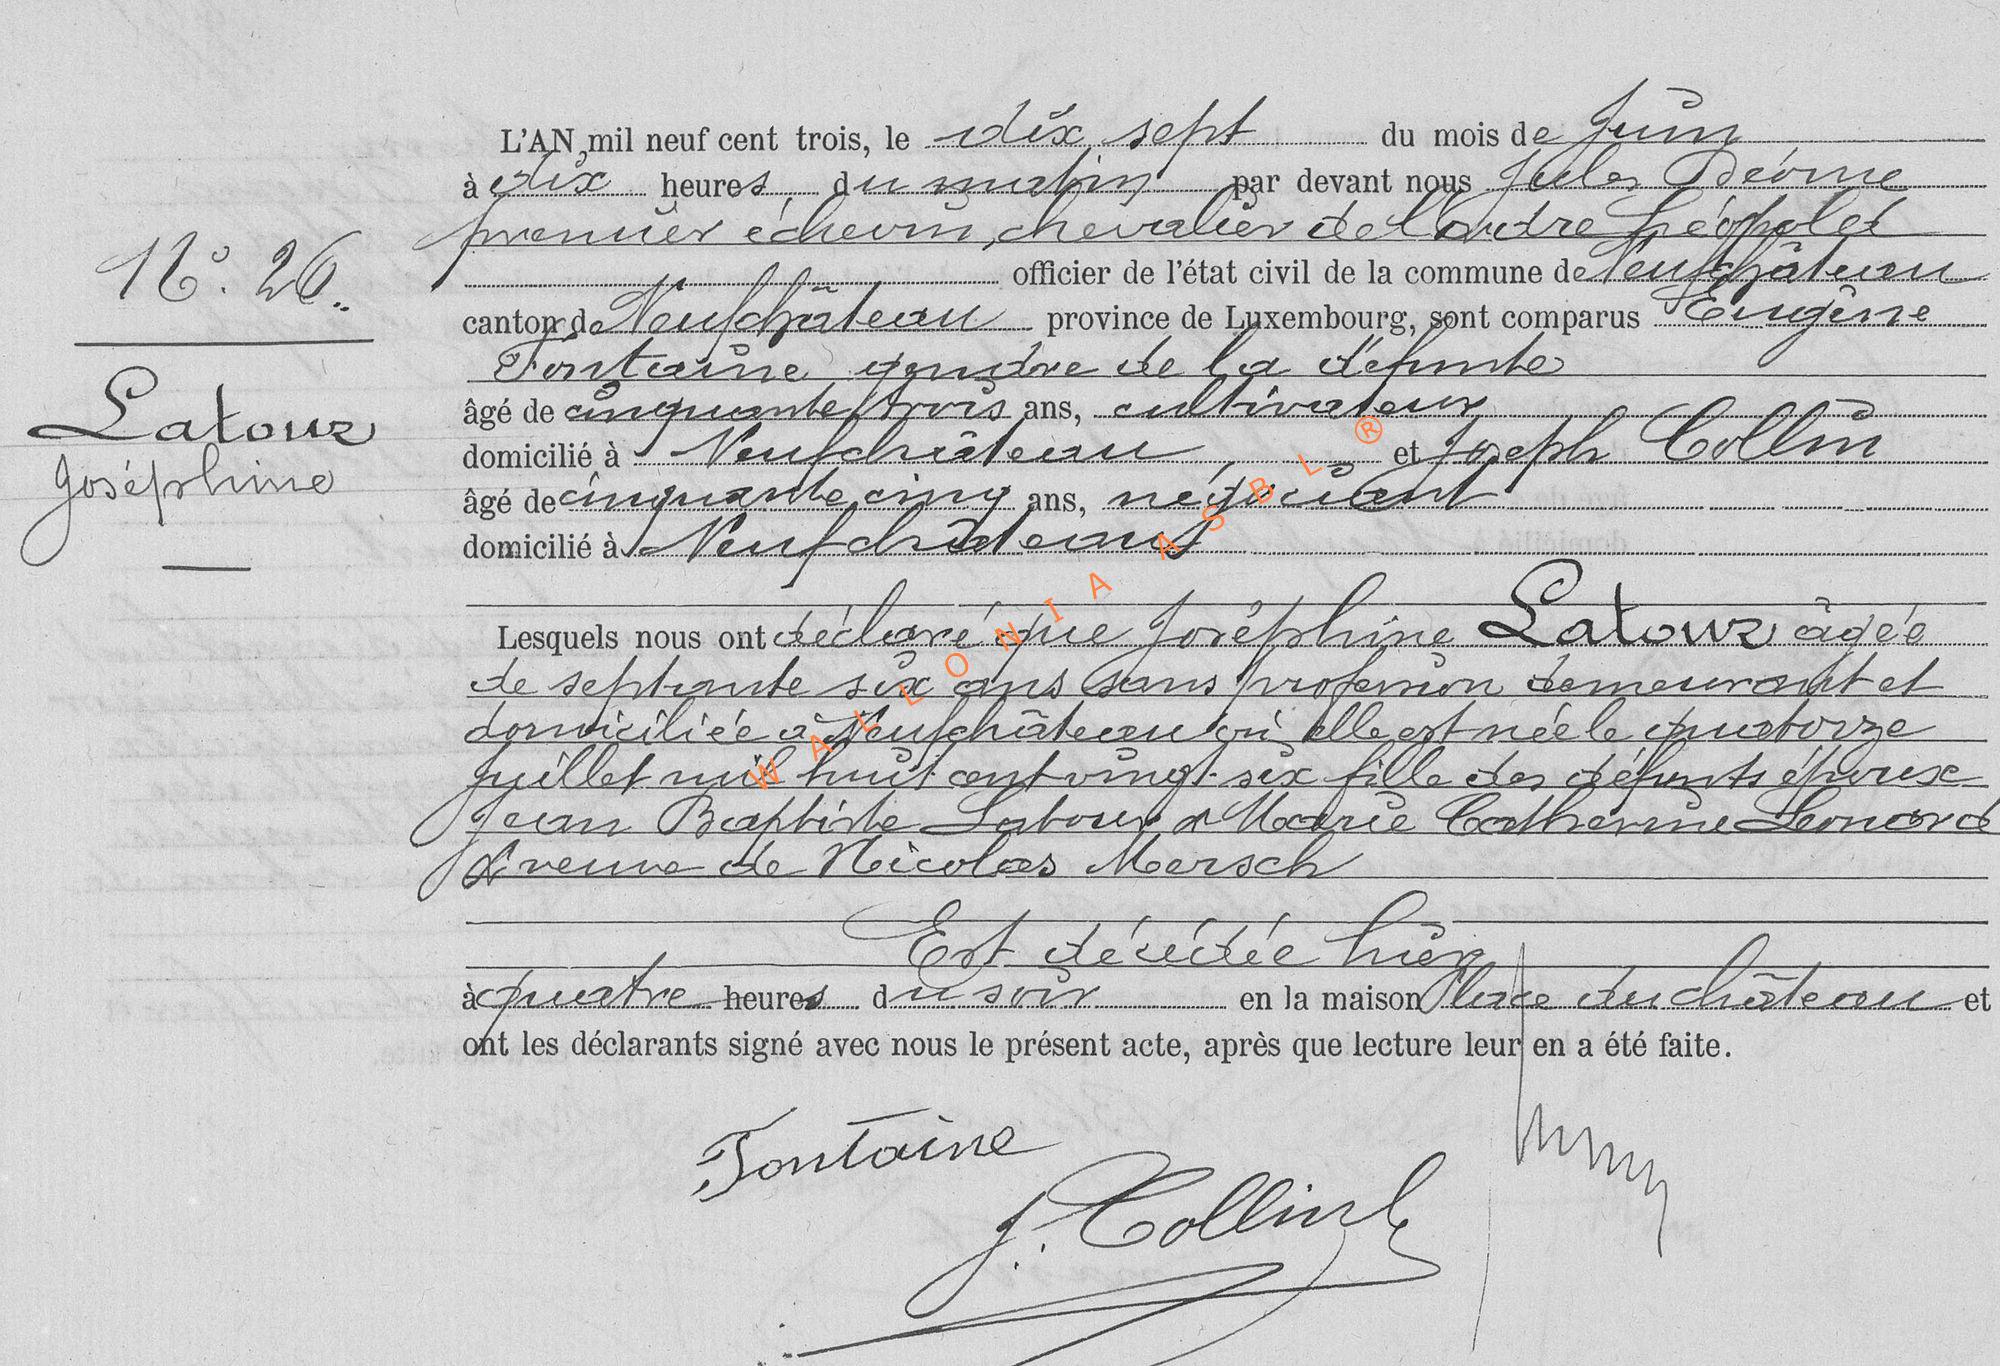 L'AN mil neuf cent trois, le dix sept du mois de Juin
à dix heures du matin par devant nous Jules
premier échevin, chevalier de l'ordre Léopold
officier de l'état civil de la commune de Neufchâteau
canton de Neufchâteau province de Luxembourg, sont comparus Eugène
Fontaine gendre de la défunte
âgé de cinquante trois ans, cultivateur
domicilié à Neufchâteau et Joseph Collin
âgé de cinquante cinq ans, négociant
domicilié à Neufchâteau
N°. 26.
Latour
Joséphine
Lesquels nous ont déclaré que Joséphine Latour âgée
de septante six ans sans profession demeurant et
domiciliée à Neufchâteau où elle est née le quatorze
Juillet mil huit cent vingt-six fille des défunts époux
Jean Baptiste Latour & Marie Catherine Leonard
& veuve de Nicolas Mersch
Est décédée hier
à quatre heures du soir en la maison Place du château et
ont les déclarants signé avec nous le présent acte, après que lecture leur en a été faite.
Fontaine
J. Collin
WALLONIA ASBL ®